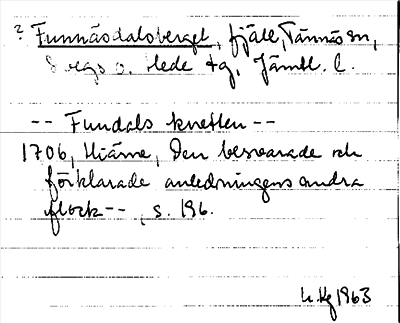 ? Funnäsdalsberget, fjäll, Tännäs sn,
Svegs o. Hede tg, Jämtl. l.
-- Fundals knetten --
1706, Hiärne, Den besvarade och
förklarade anledningens andra
flock--, s. 196.
1963